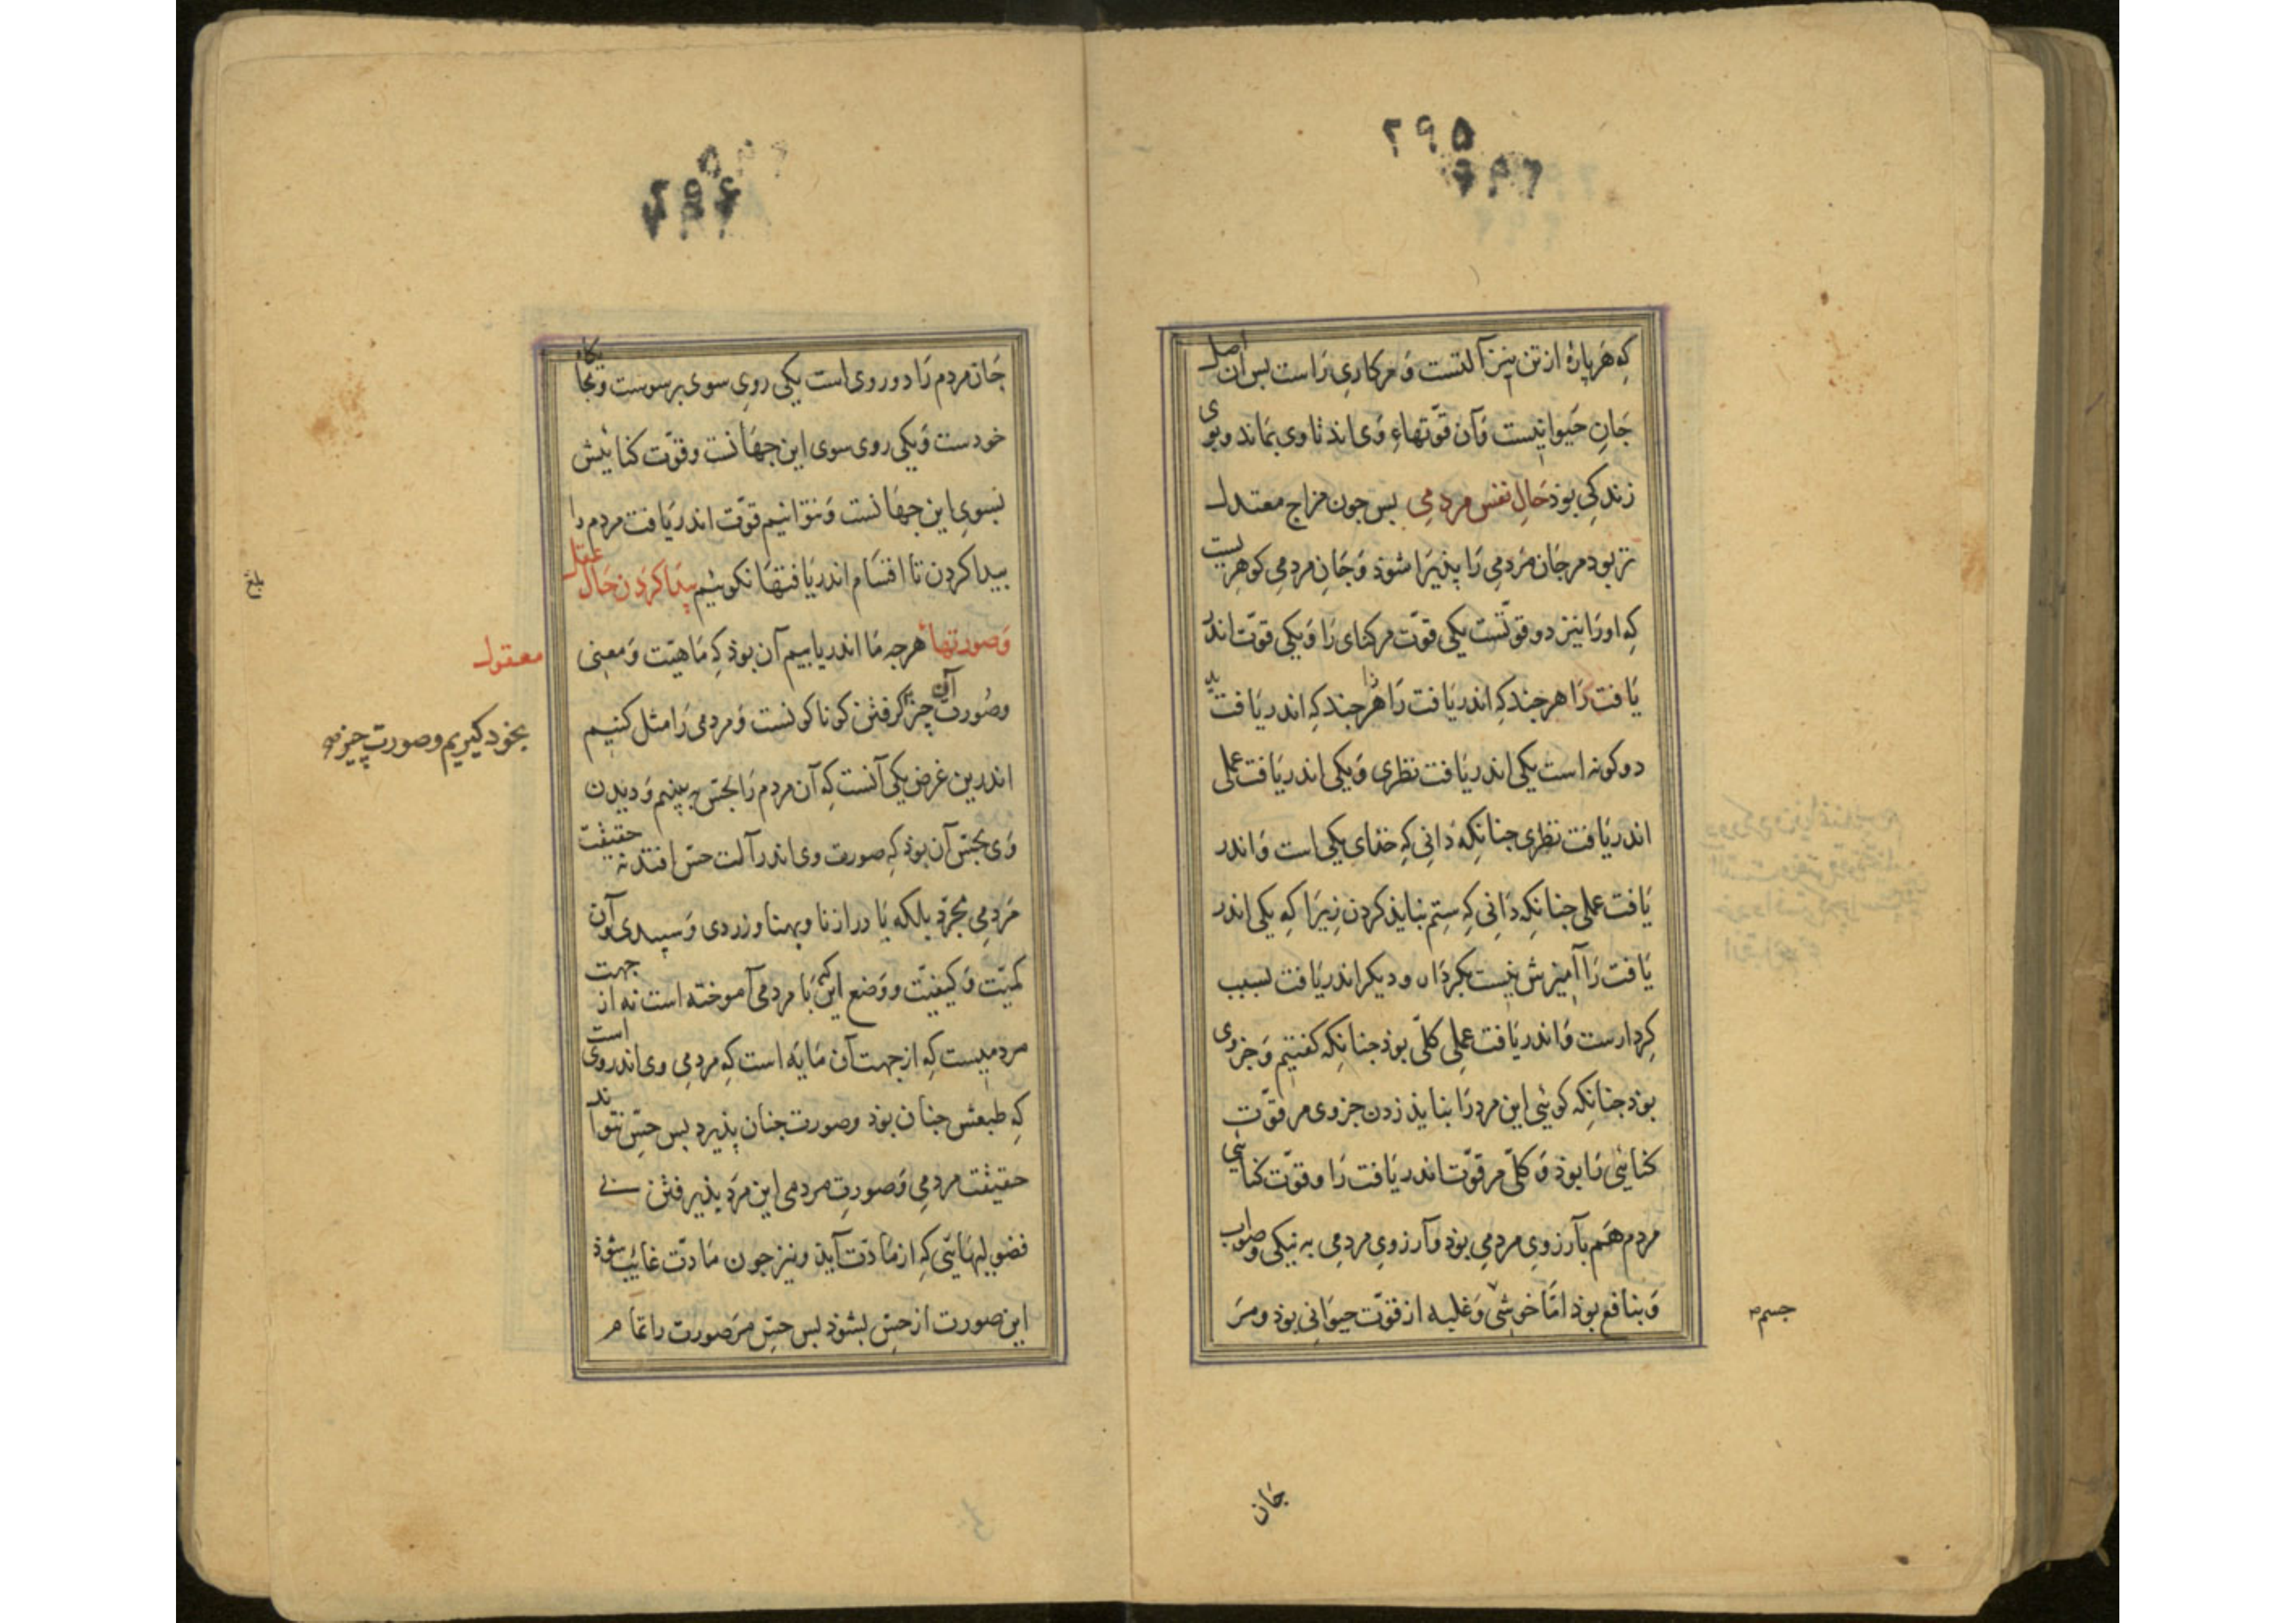 ۲۹۵
که هر پارۀ از تن نیز آلتست و مر کاری را است بس آن اصل
جان حیوانیست و آن قوّتهاء وی اند تا وی بماند و بوی
زندکی بوذ حال نفس مردمی بس جون مزاج معتدل
تر بود مر جان مردمی را پذیرا شوذ و جان مردمی کوهریست
که او را نیز دو قوّتست یکی قوّت مر کنای را و یکی قوّت اندر
یافت را هر جند که اندر یافت را هر جند که اندر یافت
دو کونه است یکی اندر یافت نظری و یکی اندر یافت عملی
اندر یافت نظری جنانکه دانی که خذای یکی است و اندر
یافت عملی جنانکه دانی که ستم نباید کردن زیرا که یکی اندر
یافت را آمیزش نیست بکردار و دیکر اندر یافت لسبب
کردارست و اندر یافت عملی کلّی بوذ جنانکه کفتیم و جزوی
بوذ جنانکه کوئی این مرد را نباید زدن جزوی مر قوّت
کنائی را بوذ و کلّی مر قوّت اندر یافت را و قوّت کنائی
مردم هم بآرزوی مردمی بوذ و آرزوی مردمی به نیکی و صواب
و بنافع بوذ امّا خوشی و غلبه از قوّت حیوانی بوذ و مر
جسم
جان
۲۹۶
جان مردم را دو روی است یکی روی سوی برسوست و بجایکاه
خودست و یکی روی سوی این جهانست و قوّت کنائیش
بسوی این جهانست و نتوانیم قوّت اندر یافت مردم را
بیدا کردن تا اقسام اندر یافتها نکوئیم پیدا کردن حال عقل
و صورتهاء معقول هرجه ما اندر یابیم آن بوذ که ماهیّت و معنی
و صورت آن چیز بخود کیریم و صورت چیز کرفتن کوناکونست و مردمی را مثل کنیم
اندرین غرض یکی آنست که آن مردم را بحسّ ببینیم و دیدن
وی بحسّ آن بوذ که صورت وی اندر آلت حسّ افتد نه حقیقت
مردمی مجرّد بلکه با درازنا و پهنا و زردی و سپیدی و آن
کمیّت و کیفیّت و وضع این که با مردمی آموخته است نه از جهت
مردمیست که از جهت آن مایه است که مردمی وی اندر وی است
که طبعش جنان بوذ و صورت جنان پذیرد بس حسّ نتواند
حقیقت مردمی و صورت مردمی این مرد پذیرفتن بی
فضولیهایی که از مادّت آید و نیز جون مادّت غائب شوذ
این صورت از حسّ بشوذ بس حسّ مر صورت را تمام
بلغ